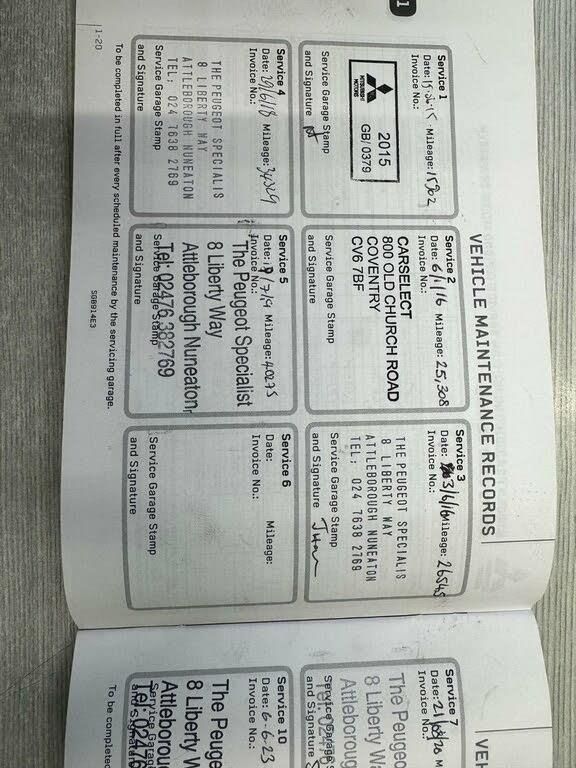 1
VEHICLE MAINTENANCE RECORDS
Service 1
Mileage: 15902
Invoice No.:
MITSUBISHI
MOTORS
2015
GB/0379
Service Garage Stamp
and Signature
Service 2
Date: 6/1/16 Mileage: 25,308
Invoice No.:
CARSELECT
800 OLD CHURCH ROAD
COVENTRY
CV6 7BF
Service Garage Stamp
and Signature
Service 3
Date: 3/6/16 Mileage: 26545
Invoice No.:
THE PEUGEOT SPECIALIS
8 LIBERTY WAY
ATTLEBOROUGH NUNEATON
TEL: 024 7638 2769
Service Garage Stamp
and Signature
Service 4
Date: Mileage: 34329
Invoice No.:
THE PEUGEOT SPECIALIS
8 LIBERTY WAY
ATTLEBOROUGH NUNEATON
TEL: 024 7638 2769
Service Garage Stamp
and Signature
Service 5
Date: /7/19 Mileage: 40275
Invoice No.:
The Peugeot Specialist
8 Liberty Way
Attleborough Nuneaton
Tel: 02476 382769
Service Garage Stamp
and Signature
Service 6
Date: Mileage:
Invoice No.:
Service Garage Stamp
and Signature
To be completed in full after every scheduled maintenance by the servicing garage.
1-20
SGB914E3
VEH
Service 7
Date: M
Invoice No.:
The Peugeo
8 Liberty Wa
Attleboroug
Tel: 02476
Service Garage S
and Signature
Service 10
Date: 6-6-23
Invoice No.:
The Peuge
8 Liberty W
Attleborou
Tel: 02476
Service Garag
and Signatu
To be completed